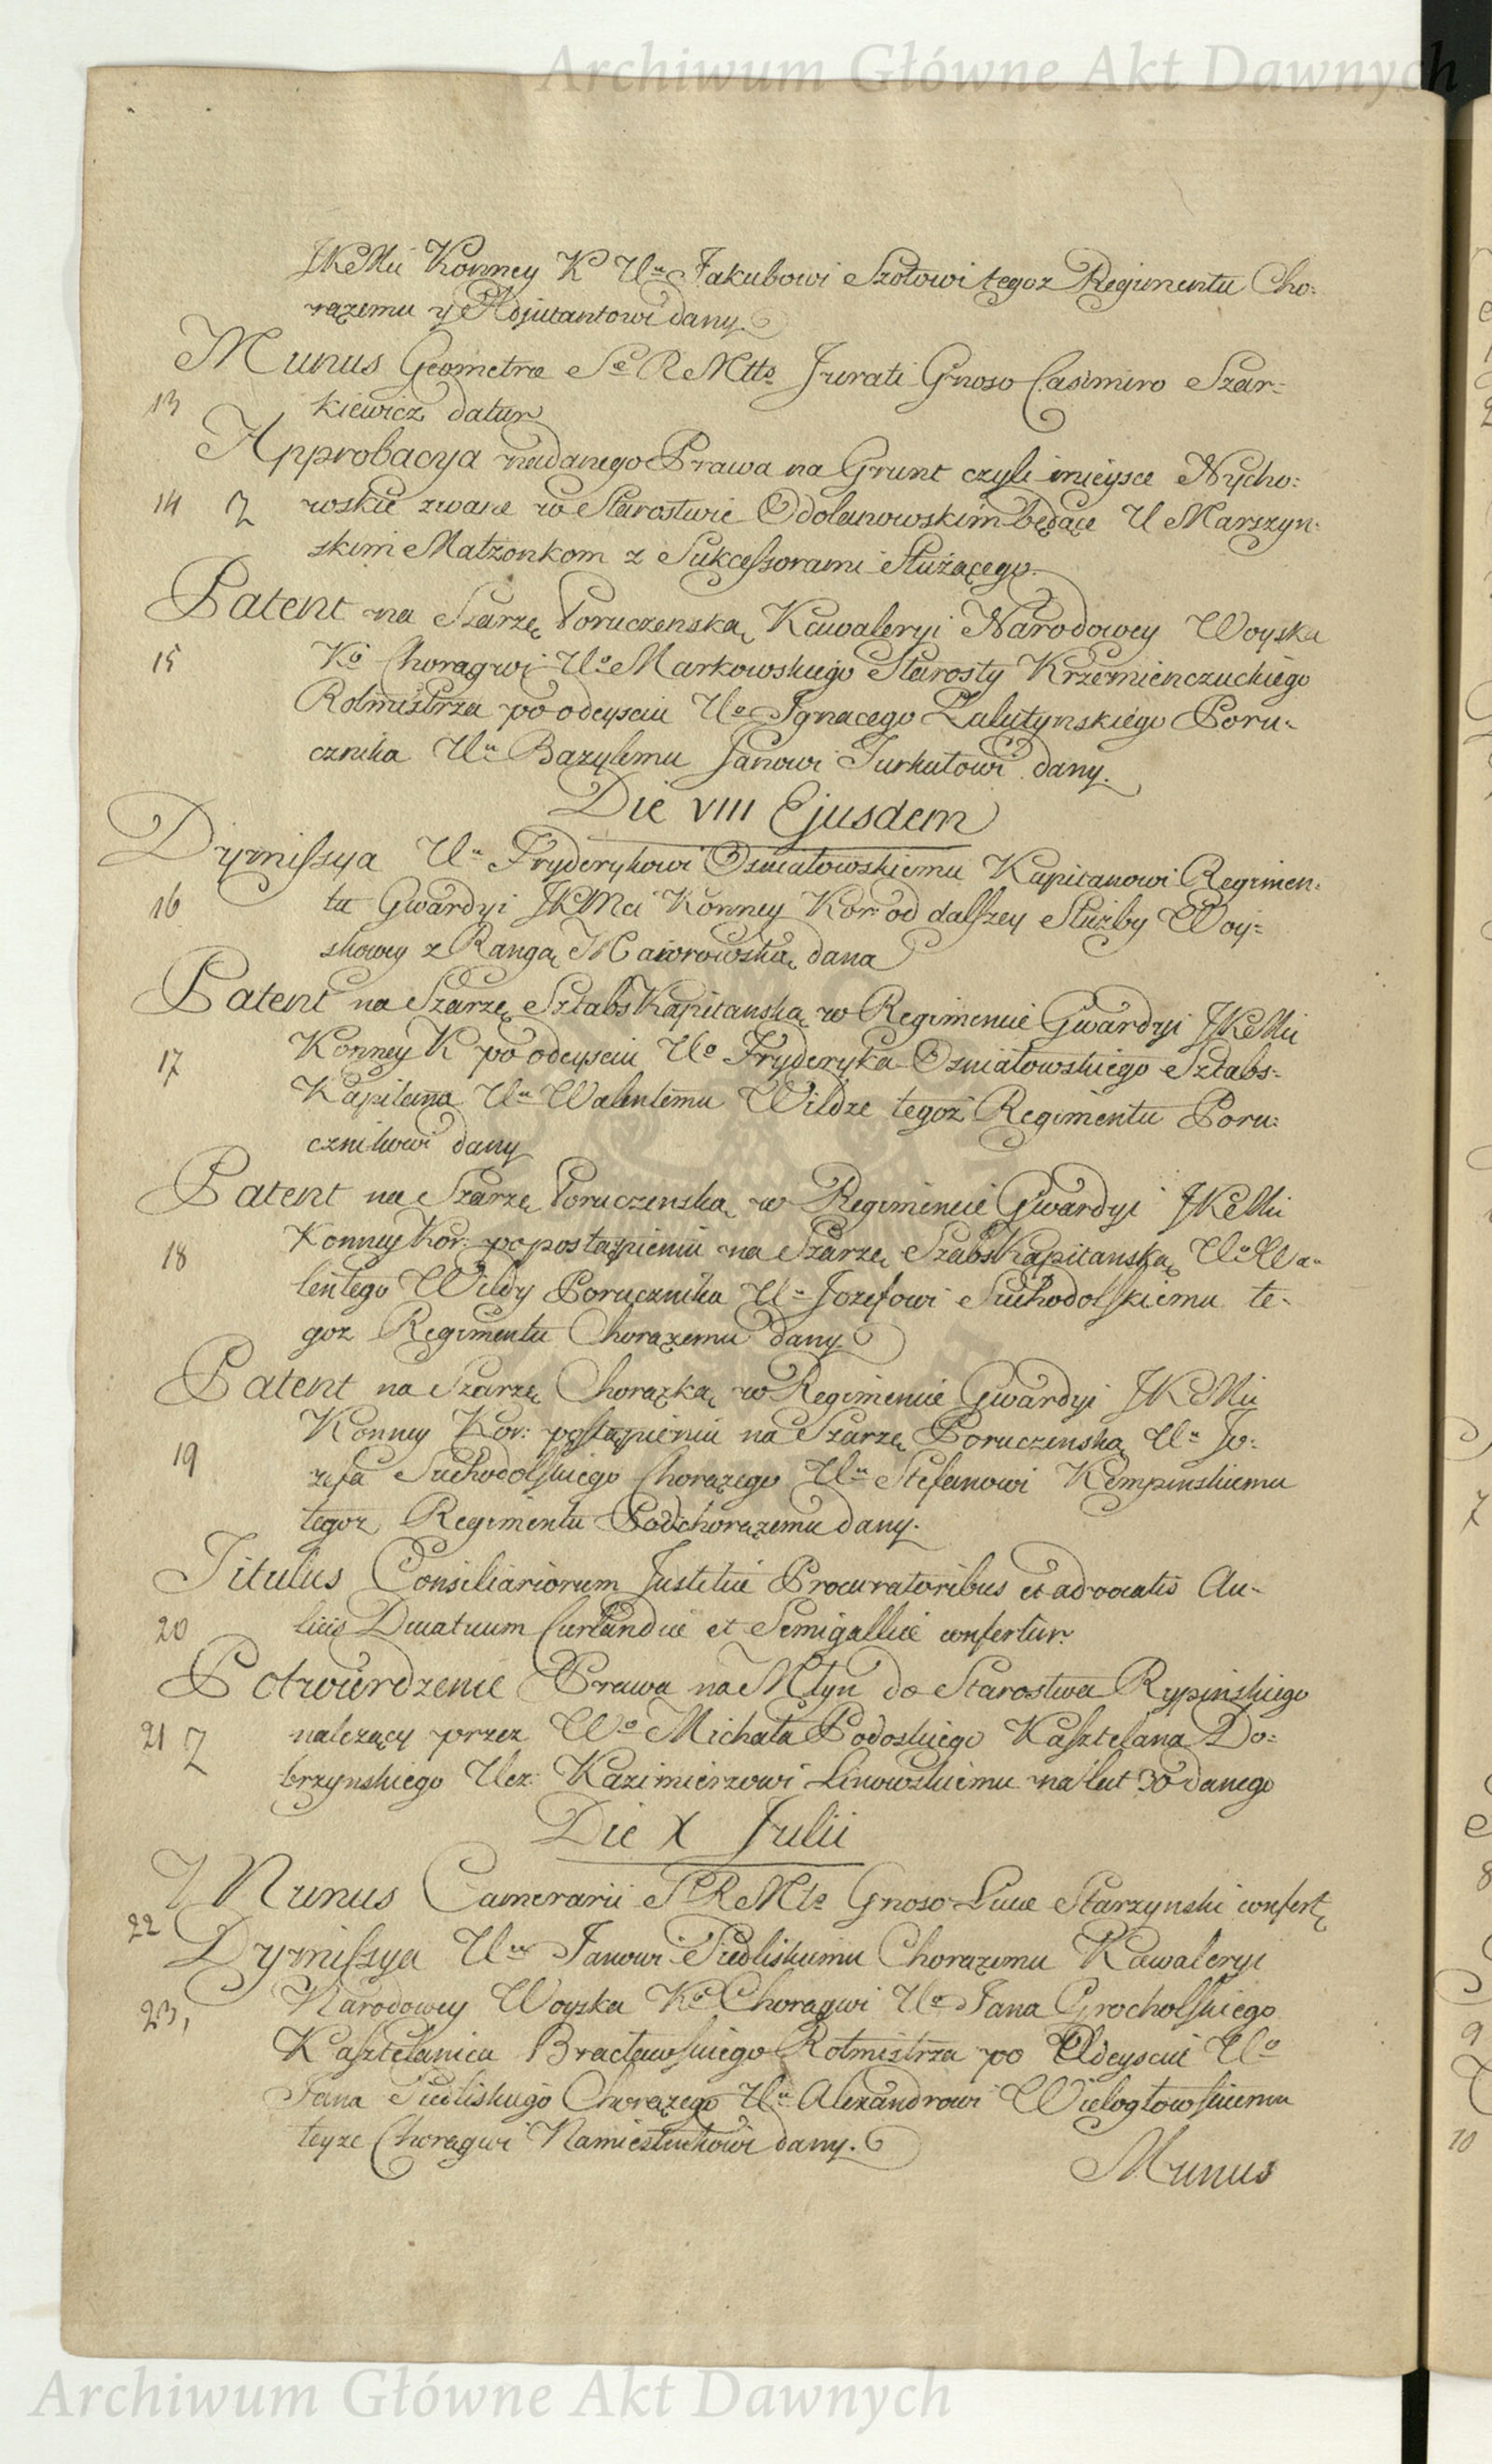 Archiwum Główne Akt Dawnych
JKMci Konney K Ur Jakubowi Szołowi tegoz Regimentu Cho:
rązemu y Adjutantowi dany.
Munus Geometræ Sæ R Mttis Jurati Gnoso Casimiro Szar=
13 kiewicz datur
Approbacya nadanego Prawa na Grunt czyli mieysce Nycho:
14 Z woskie zwane w Starostwie Odolanowskim będące U Marszyn:
skim Małzonkom z Sukcessorami Służącego.
Patent na Szarzę Poruczenską Kawaleryi Narodowey Woyska
15 Ko Chorągwi Uo Markowskiego Starosty Krzemienczuckiego
Rotmistrza po odeysciu Uo Ignacego Zalutynskiego Poru=
cznika Un Bazylemu Janowi Turkułowi dany.
Die VIII Ejusdem
Dymissya Un Fryderykowi Ozniałowskiemu Kapitanowi Regimen:
16 tu Gwardyi JKMci Konney Kor: od dalszey Służby Woy=
skowey z Rangą Maiorowską dana
Patent na Szarzę SztabsKapitanską w Regimencie Gwardyi JKMci
17 Konney K po odeysciu Uo Fryderyka Ozniałowskiego Sztabs:
Kapitana Un Walentemu Wildze tegoż Regimentu Poru:
cznikowi dany
Patent na Szarzę Poruczenską w Regimencie Gwardyi JKMci
18 Konney Kor: po postąpieniu na Szarzę SzabsKapitanską Uo Wa=
lentego Wildy Porucznika Un Jozefowi Suchodolskiemu te=
goz Regimentu Chorązemu dany
Patent na Szarzę Chorązką w Regimencie Gwardyi JKMci
19 Konney Kor: postąpieniu na Szarzę Poruczenską Un Jo:
zefa Suchodolskiego Chorązego Un Stefanowi Kempinskiemu
tegoz Regimentu Podchorązemu dany.
Titulus Consiliariorum Justitiæ Procuratoribus et advocatis Au=
20 licis Ducatuum Curlandiæ et Semigalliæ confertur.
Potwierdzenie Prawa na Młyn do Starostwa Rypinskiego
21 Z nalezący przez Wo Michała Podoskiego Kasztelana Do:
brzynskiego Urz: Kazimierzowi Linowskiemu na lat 30 danego
Die X Julii
Munus Camerarii S R Mtis Gnoso Lucæ Starzynski confert
22
Dymissya Un Janowi Siedliskiemu Chorązemu Kawaleryi
23, Narodowey Woyska Ko Chorągwi Uo Jana Grocholskiego
Kasztelanica Bracławskiego Rotmistrza po Odeysciu Uo
Jana Siedliskiego Chorązego Un Alexandrowi Wielogłowskiemu
teyze Chorągwi Namiestnikowi dany.
Munus
Archiwum Główne Akt Dawnych